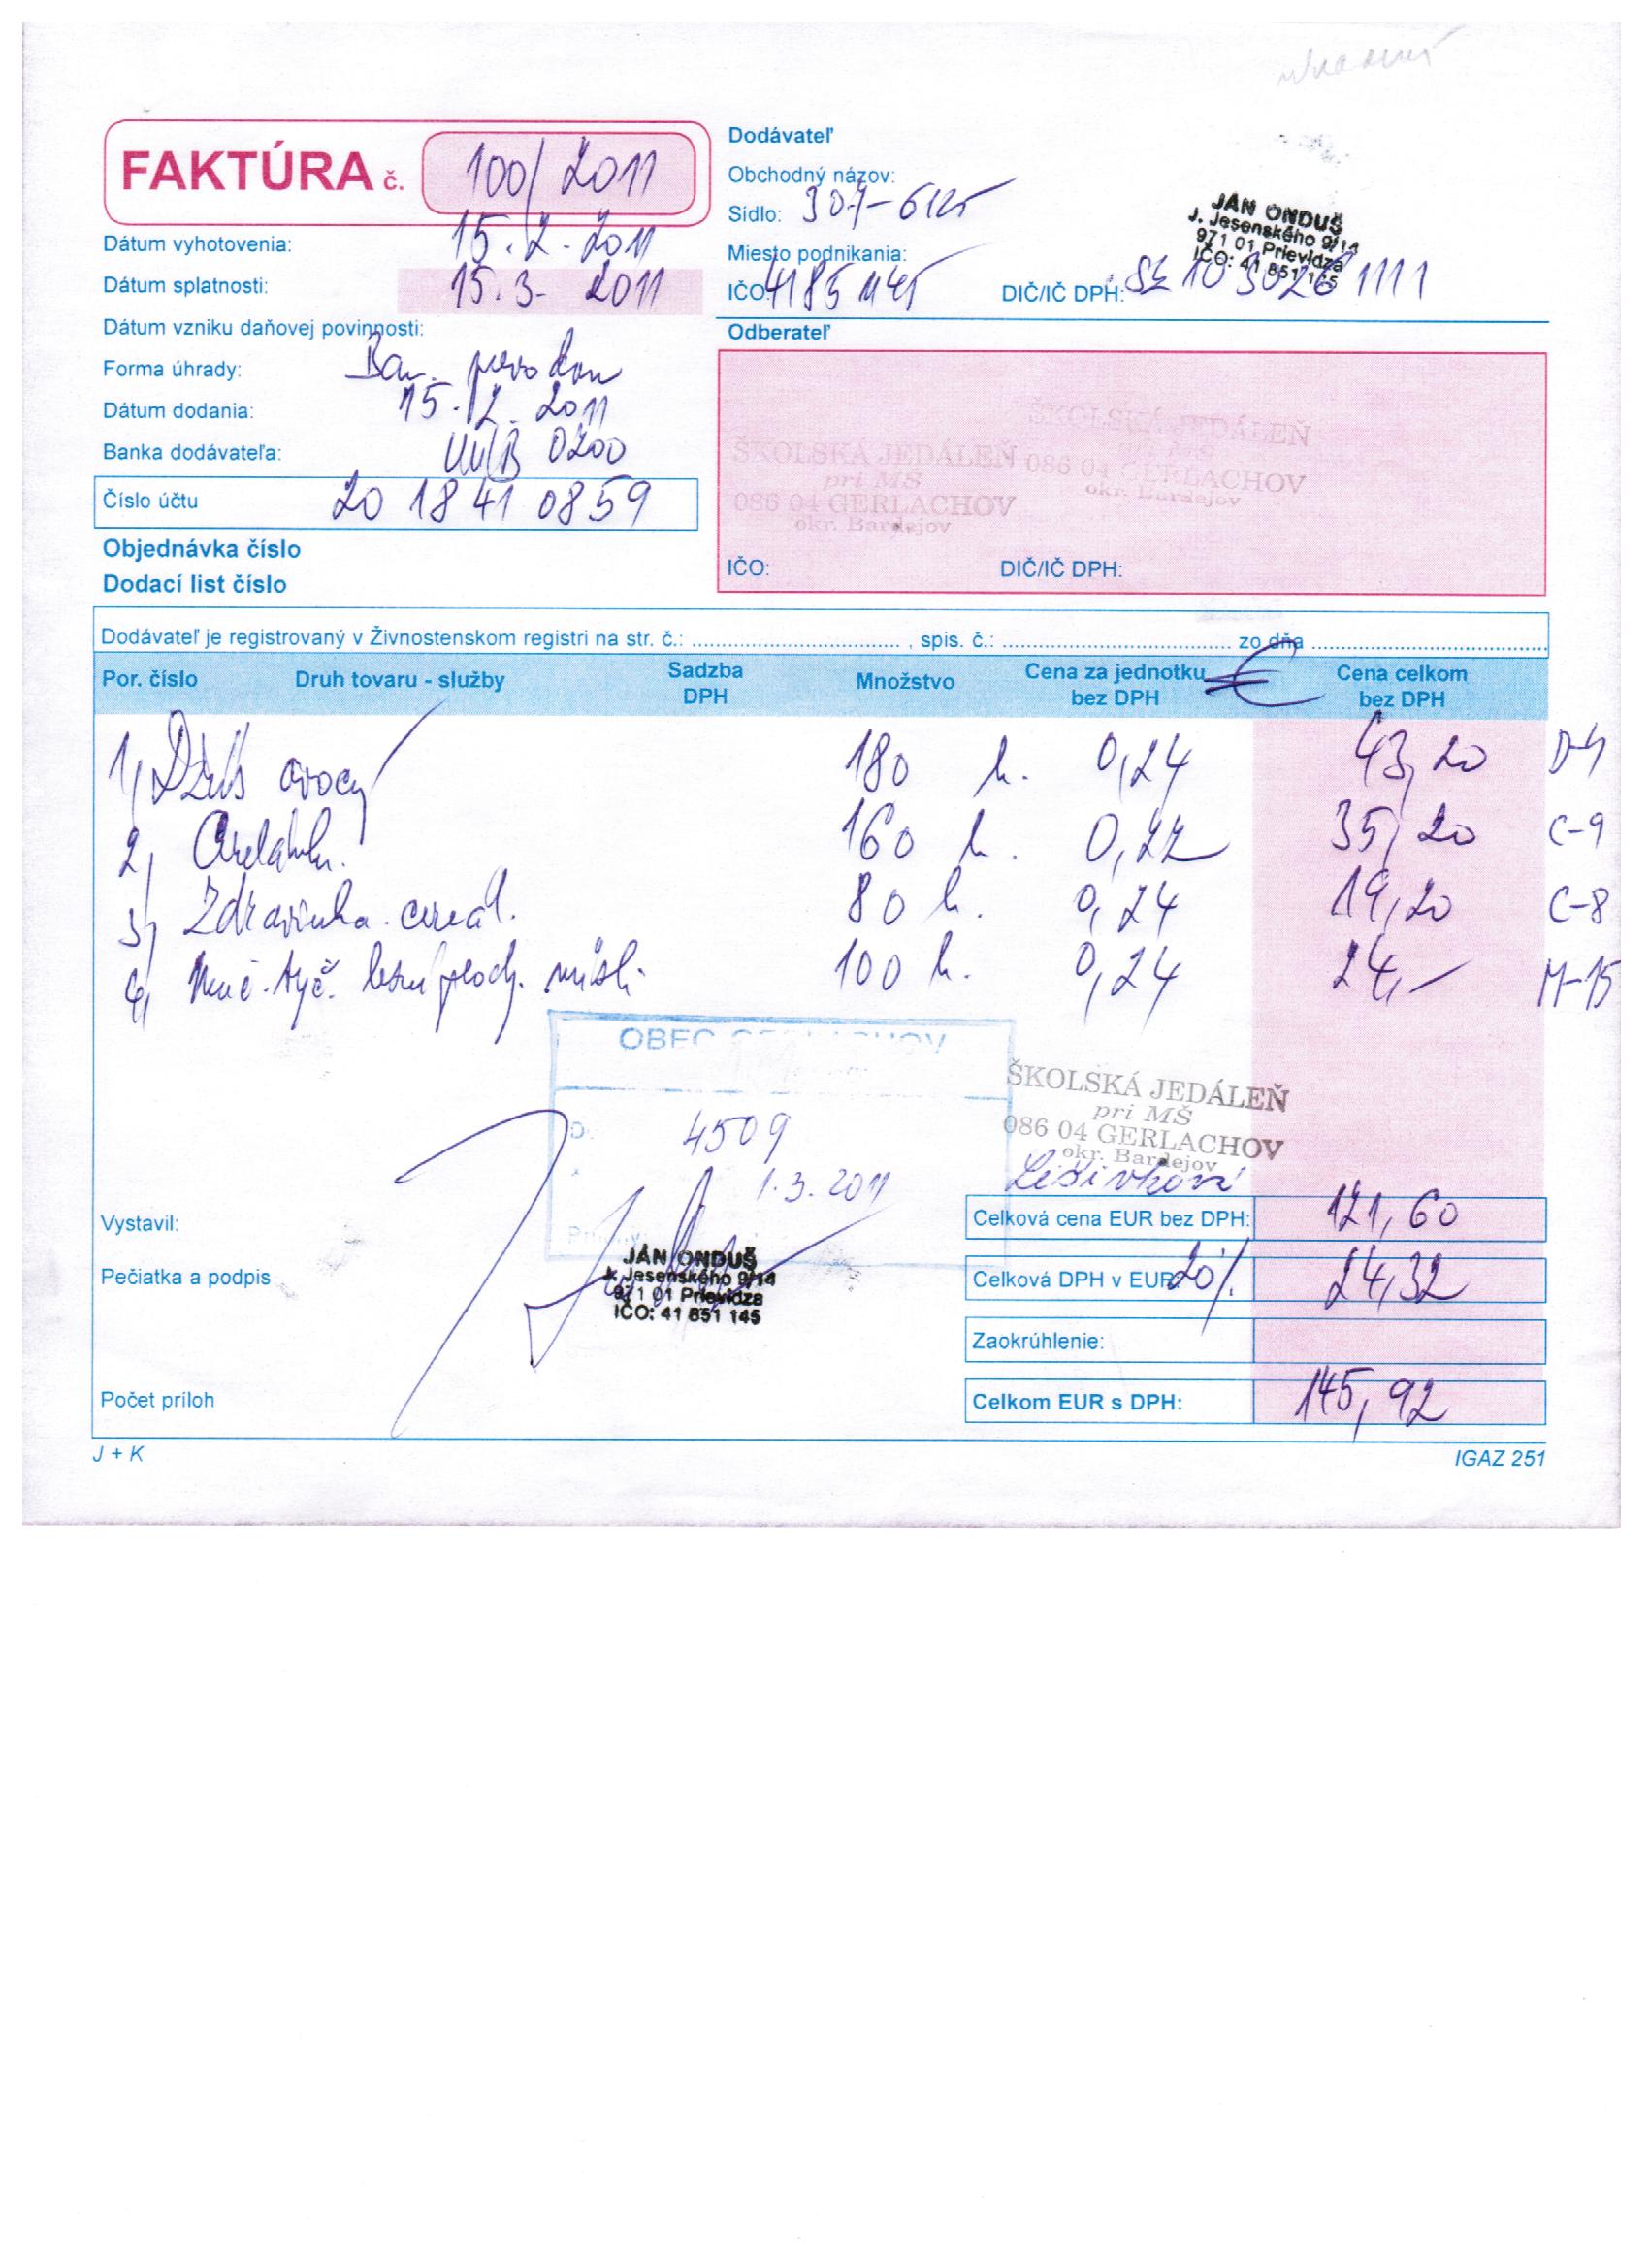 FAKTÚRA č. 100/2011
Dátum vyhotovenia: 15.2.2011
Dátum splatnosti: 15.3.2011
Dátum vzniku daňovej povinnosti:
Forma úhrady: Ban. prevodom
Dátum dodania: 15.2.2011
Banka dodávateľa: VUB 0200
Číslo účtu 20 18 41 0859
Objednávka číslo
Dodací list číslo
Dodávateľ
Obchodný názov:
Sídlo:
Miesto podnikania:
IČO: 41851145 DIČ/IČ DPH:
JÁN ONDUŠ
J. Jesenského 9/14
971 01 Prievidza
IČO: 41 851 145
Odberateľ
ŠKOLSKÁ JEDÁLEŇ
pri MŠ
086 04 GERLACHOV
okr. Bardejov
ŠKOLSKÁ JEDÁLEŇ
pri MŠ
086 04 GERLACHOV
okr. Bardejov
IČO: DIČ/IČ DPH:
Dodávateľ je registrovaný v Živnostenskom registri na str. č.: , spis. č.: zo dňa
Por. číslo Druh tovaru - služby Sadzba DPH Množstvo Cena za jednotku bez DPH € Cena celkom bez DPH
1, Džús ovocný 180 0,24 43,20 D-4
2, 160 0,22 35,20 C-9
3, Zdravinka cereal. 80 0,24 19,20 C-8
4, 100 0,24 24,- M-15
OBEC GERLACHOV
4509
1.3.2011
ŠKOLSKÁ JEDÁLEŇ
pri MŠ
086 04 GERLACHOV
okr. Bardejov
Vystavil:
Pečiatka a podpis
JÁN ONDUŠ
J. Jesenského 9/14
971 01 Prievidza
IČO: 41 851 145
Počet príloh
Celková cena EUR bez DPH: 121,60
Celková DPH v EUR 20% 24,32
Zaokrúhlenie:
Celkom EUR s DPH: 145,92
J + K IGAZ 251